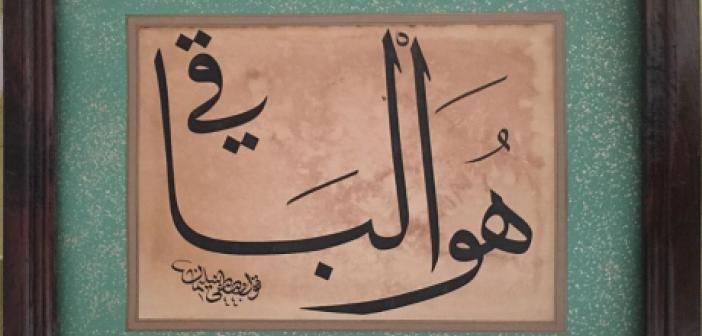 هُوَ الْبَاقِي